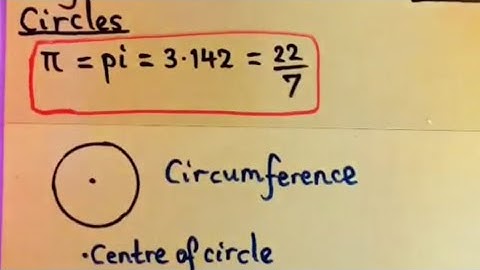 Circles
π = pi = 3·142 = 22/7
Circumference
·Centre of circle